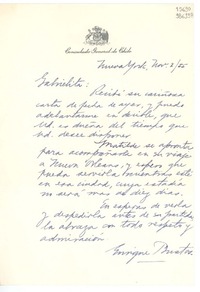 Consulado General de Chile
Nueva York, Nov. 2/55
Gabrielita:
Recibí su cariñosa
carta de fecha de ayer, y puedo
adelantarme a decirle, que
Ud. es dueña del tiempo que
Ud. desee disponer.
Matilde se apronta
para acompañarla en su viaje
a Nueva Orleans, y espero que
pueda servirla mientras esté
en esa ciudad, cuya estadía
no será mas de diez días.
En espera de verla
y despedirla antes de su partida
la abraza con todo respeto y
admiración
Enrique Bustos